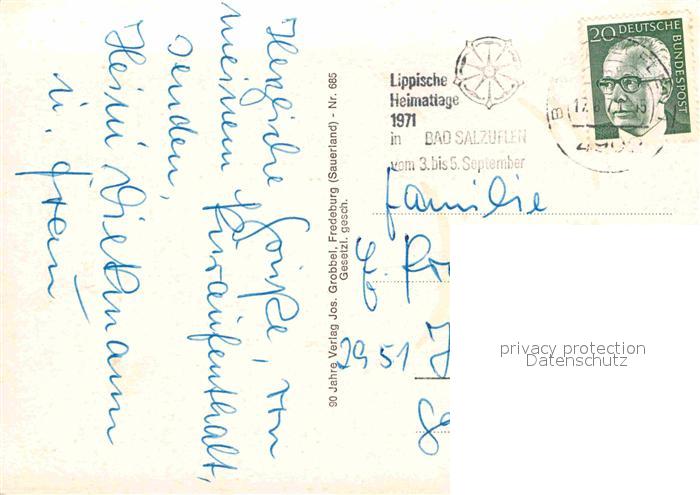 Herzliche Grüße, von
meinem Kuraufenthalt,
senden,
Heini Diekmann
u. Frau
90 Jahre Verlag Jos. Grobbel, Fredeburg (Sauerland) - Nr. 685
Gesetzl. gesch.
Lippische
Heimattage
1971
in BAD SALZUFLEN
vom 3. bis 5. September
20 DEUTSCHE
BUNDESPOST
Familie
2951
privacy protection
Datenschutz